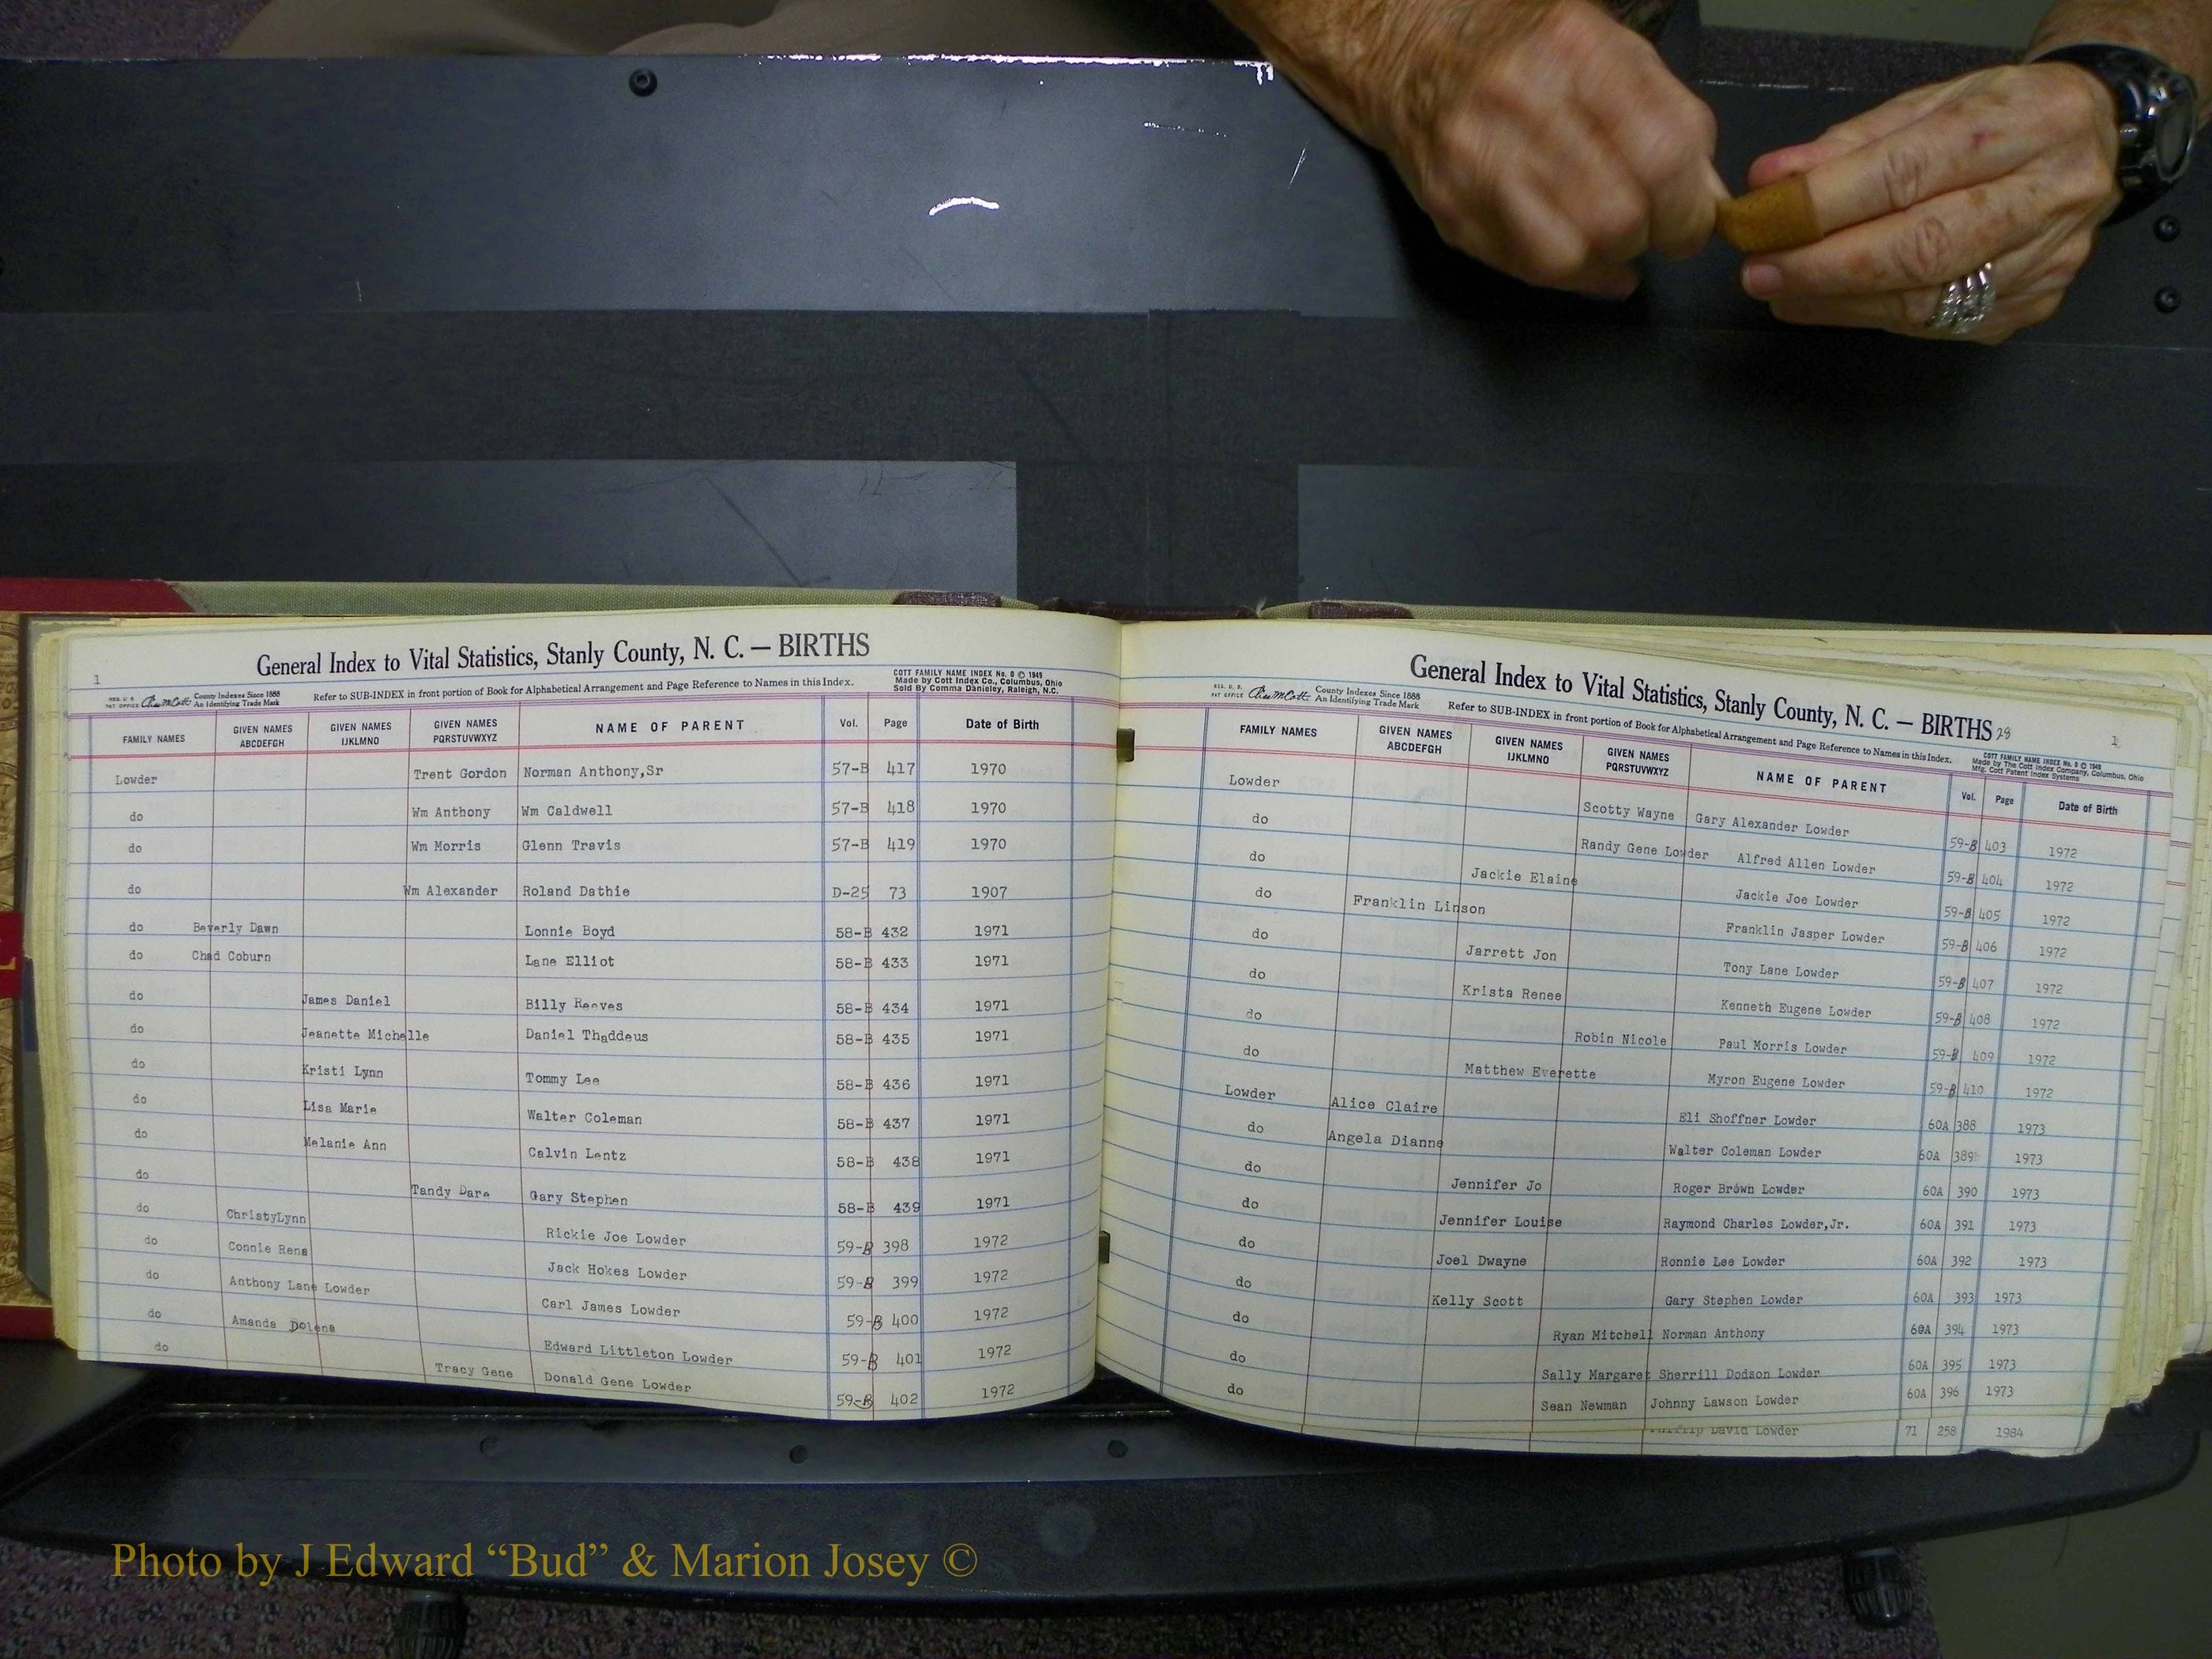 General Index to Vital Statistics, Stanly County, N. C. — BIRTHS
1
REG. U. S. PAT OFFICE County Indexes Since 1888 An Identifying Trade Mark
Refer to SUB-INDEX in front portion of Book for Alphabetical Arrangement and Page Reference to Names in this Index.
COTT FAMILY NAME INDEX No. 9 © 1949
Made by Cott Index Co., Columbus, Ohio
Sold By Comma Danieley, Raleigh, N.C.
FAMILY NAMES GIVEN NAMES ABCDEFGH GIVEN NAMES IJKLMNO GIVEN NAMES PQRSTUVWXYZ NAME OF PARENT Vol. Page Date of Birth
Lowder Trent Gordon Norman Anthony,Sr 57-B 417 1970
do Wm Anthony Wm Caldwell 57-B 418 1970
do Wm Morris Glenn Travis 57-B 419 1970
do Wm Alexander Roland Dathie D-25 73 1907
do Beverly Dawn Lonnie Boyd 58-B 432 1971
do Chad Coburn Lane Elliot 58-B 433 1971
do James Daniel Billy Reeves 58-B 434 1971
do Jeanette Michelle Daniel Thaddeus 58-B 435 1971
do Kristi Lynn Tommy Lee 58-B 436 1971
do Lisa Marie Walter Coleman 58-B 437 1971
do Melanie Ann Calvin Lentz 58-B 438 1971
do Tandy Dare Gary Stephen 58-B 439 1971
do ChristyLynn Rickie Joe Lowder 59-B 398 1972
do Connie Rena Jack Hokes Lowder 59-B 399 1972
do Anthony Lane Lowder Carl James Lowder 59-B 400 1972
do Amanda Dolena Edward Littleton Lowder 59-B 401 1972
do Tracy Gene Donald Gene Lowder 59-B 402 1972
General Index to Vital Statistics, Stanly County, N. C. — BIRTHS 28
1
REG. U. S. PAT OFFICE County Indexes Since 1888 An Identifying Trade Mark
Refer to SUB-INDEX in front portion of Book for Alphabetical Arrangement and Page Reference to Names in this Index.
COTT FAMILY NAME INDEX No. 9 © 1949
Made by The Cott Index Company, Columbus, Ohio
Mfg. Cott Patent Index Systems
FAMILY NAMES GIVEN NAMES ABCDEFGH GIVEN NAMES IJKLMNO GIVEN NAMES PQRSTUVWXYZ NAME OF PARENT Vol. Page Date of Birth
Lowder Scotty Wayne Gary Alexander Lowder 59-B 403 1972
do Randy Gene Lowder Alfred Allen Lowder 59-B 404 1972
do Jackie Elaine Jackie Joe Lowder 59-B 405 1972
do Franklin Linson Franklin Jasper Lowder 59-B 406 1972
do Jarrett Jon Tony Lane Lowder 59-B 407 1972
do Krista Renee Kenneth Eugene Lowder 59-B 408 1972
do Robin Nicole Paul Morris Lowder 59-B 409 1972
do Matthew Everette Myron Eugene Lowder 59-B 410 1972
Lowder Alice Claire Eli Shoffner Lowder 60A 388 1973
do Angela Dianne Walter Coleman Lowder 60A 389 1973
do Jennifer Jo Roger Brown Lowder 60A 390 1973
do Jennifer Louise Raymond Charles Lowder,Jr. 60A 391 1973
do Joel Dwayne Ronnie Lee Lowder 60A 392 1973
do Kelly Scott Gary Stephen Lowder 60A 393 1973
do Ryan Mitchell Norman Anthony 60A 394 1973
do Sally Margaret Sherrill Dodson Lowder 60A 395 1973
do Sean Newman Johnny Lawson Lowder 60A 396 1973
David Lowder 71 258 1984
Photo by J Edward “Bud” & Marion Josey ©